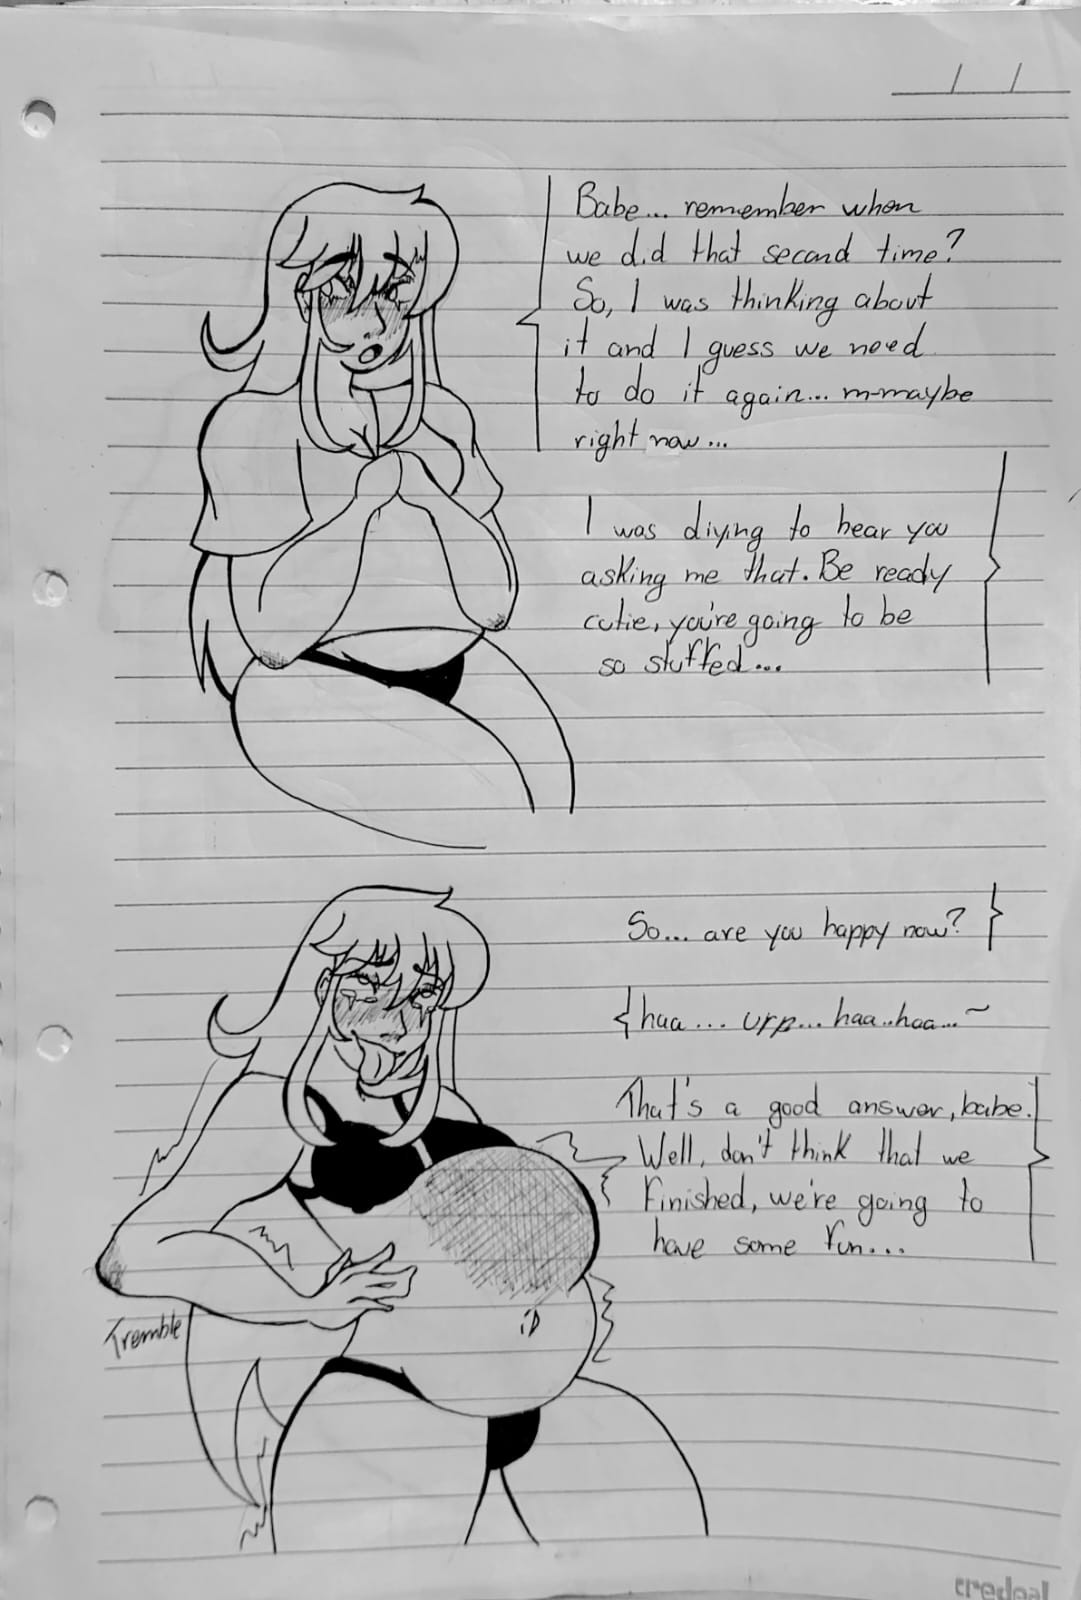 Babe... remember when
we did that second time?
So, I was thinking about
it and I guess we need
to do it again... m-maybe
right now...
I was diying to hear you
asking me that. Be ready
cutie, you're going to be
so stuffed...
So... are you happy now?
haa... urp... haa..haa...~
That's a good answer, babe.
Well, don't think that we
Finished, we're going to
have some fun...
Tremble
credeal